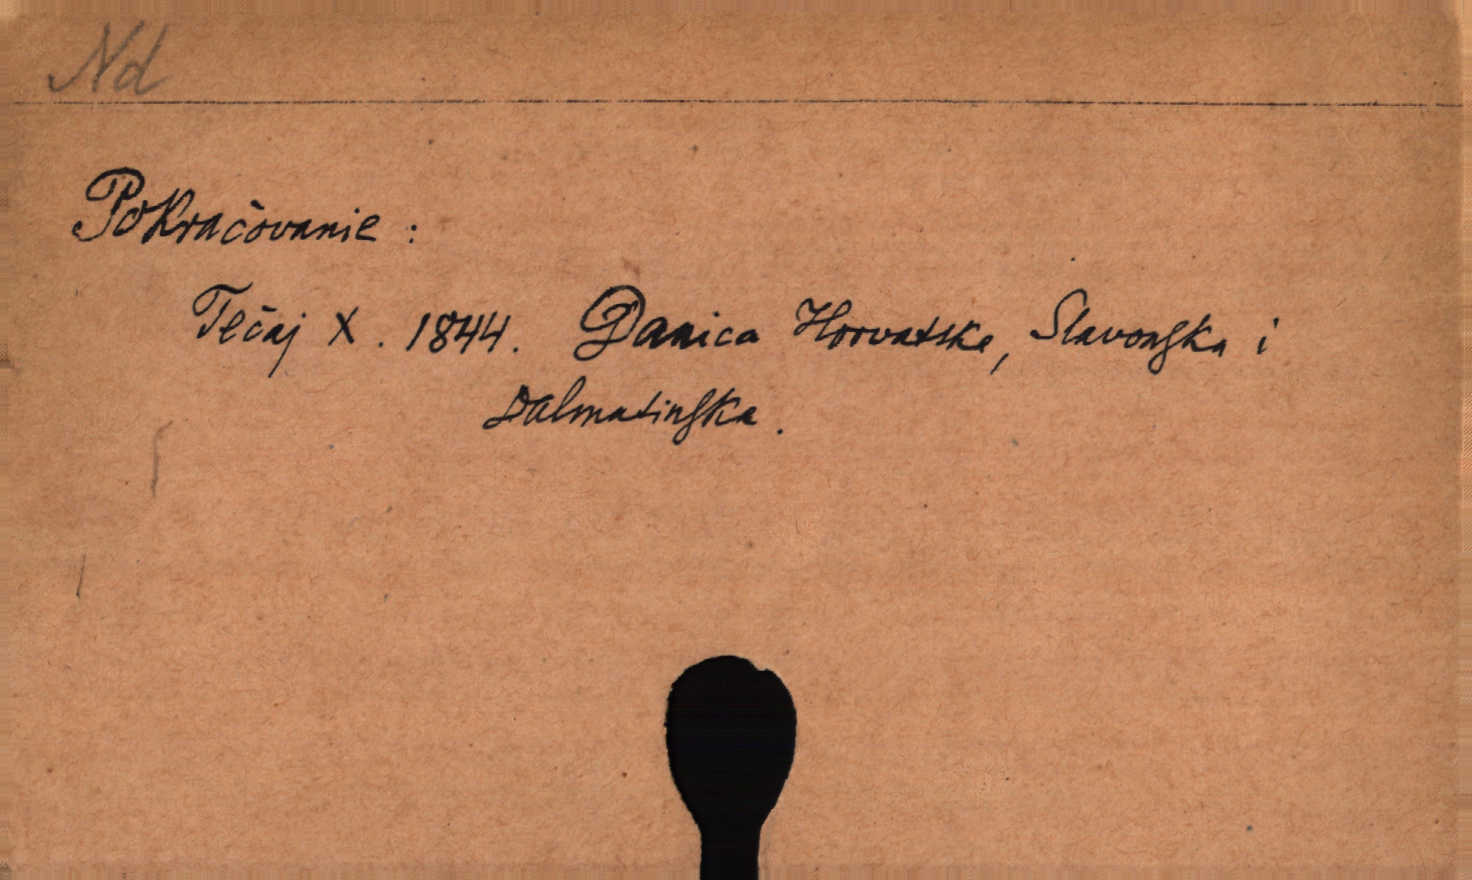 Nd
Pokračovanie :
Tečaj X. 1844. Danica Horvatska, Slavonska i
Dalmatinska.